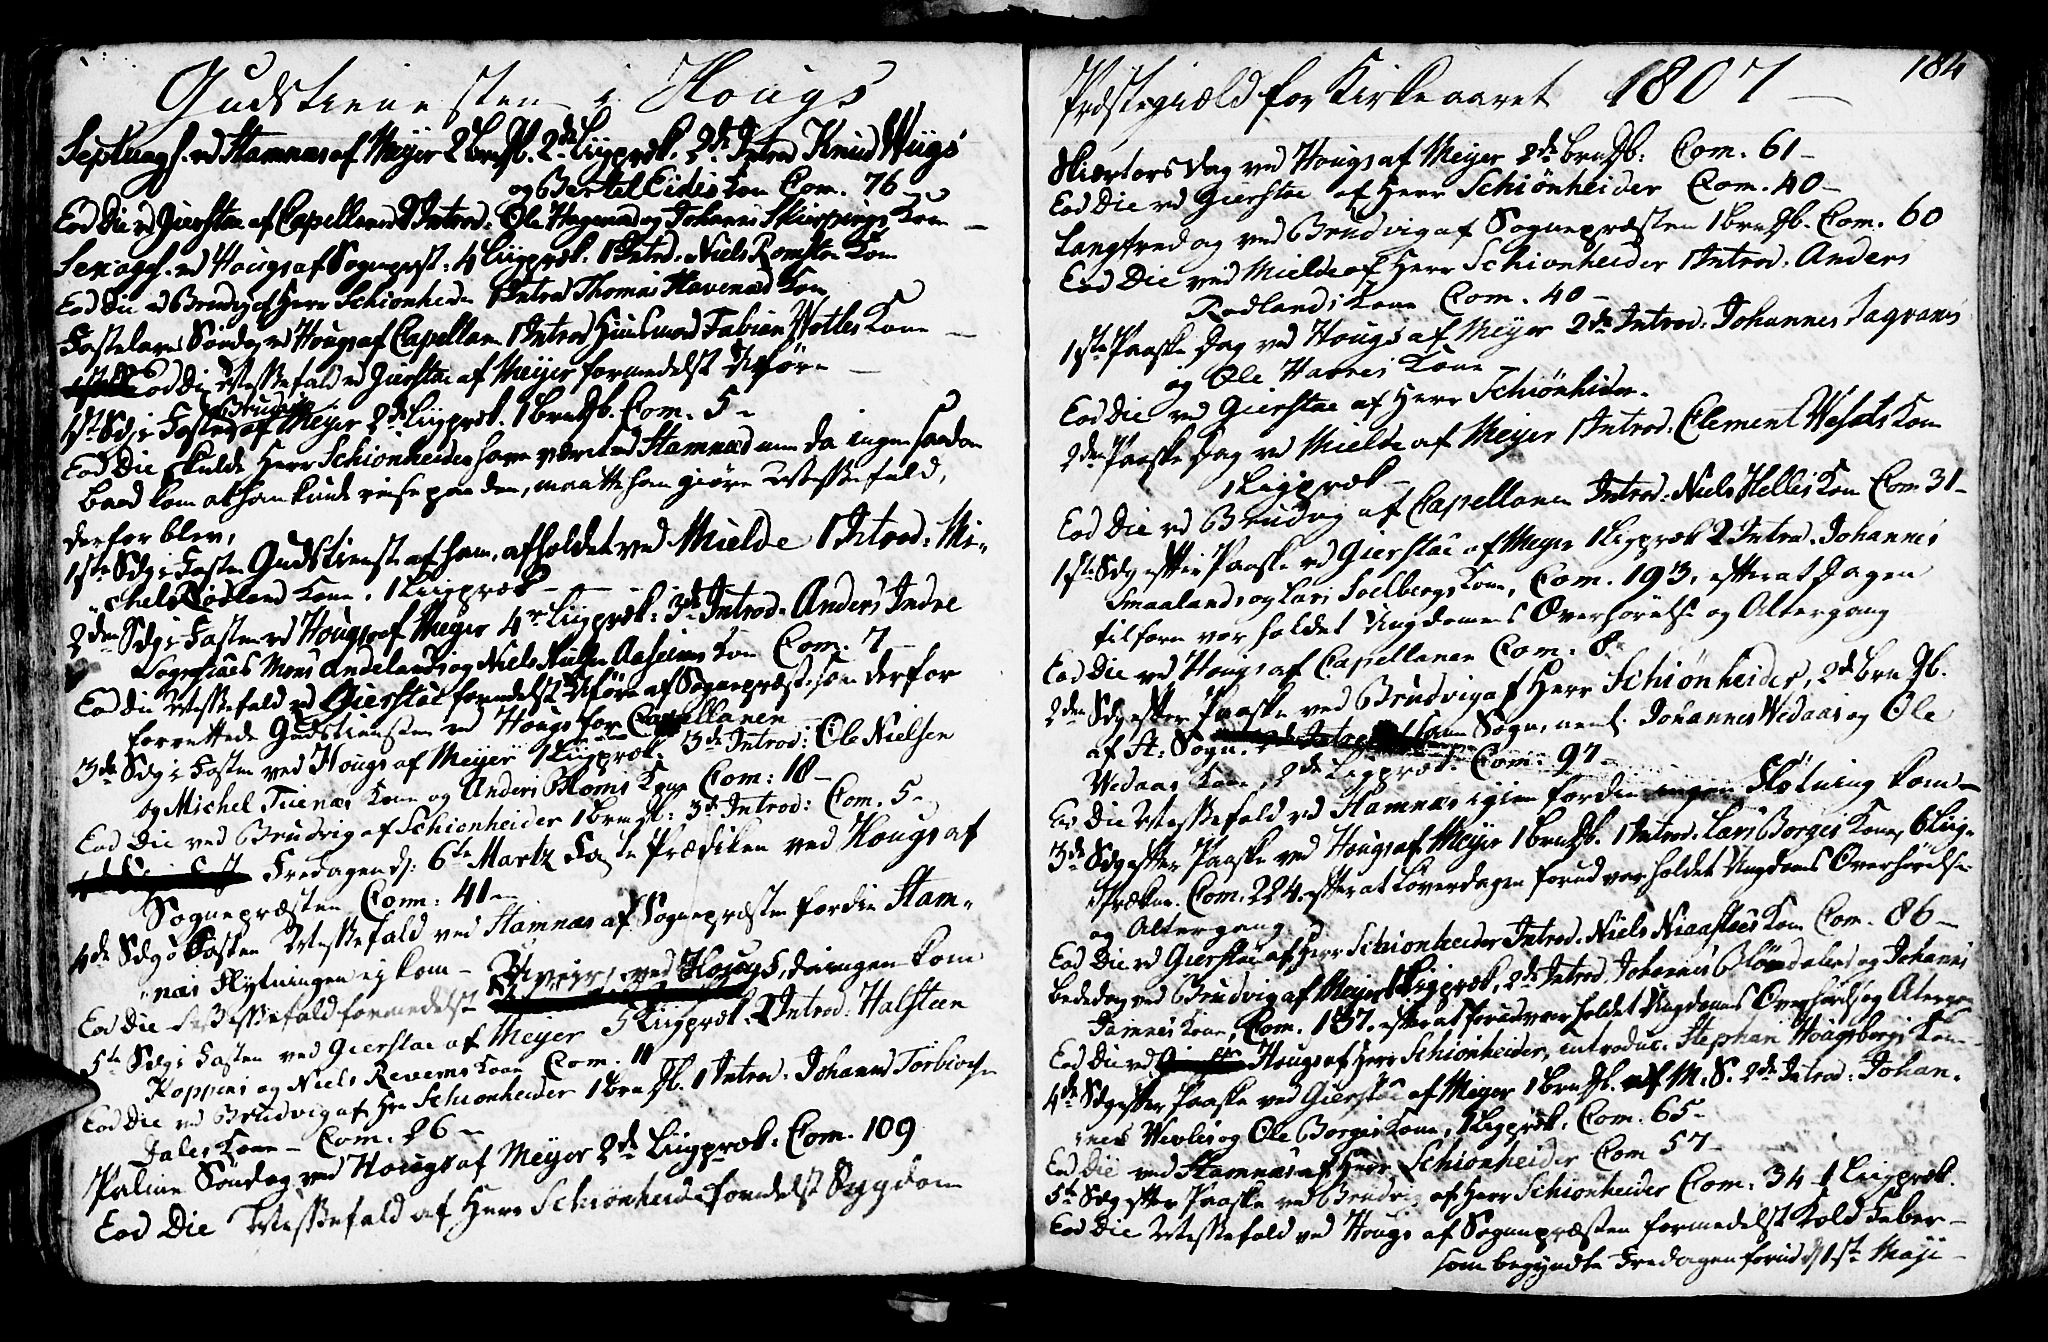 Gudstienesten i Hougs
Septuages. ved Stamnæs af Meyer 2 brudfb. 2de Liigpræk. 2de Introd. Knud Wiigs
og Bertel Eides Kone Com. 76 –
Eod Die ved Gierstae af Capellanen Introd. Ole Hagenæs og Johannes Skiærpings Kone –
Sexages. ved Hougs af Sognepræst. 4 Liigpræk. 1 Introd. Niels Romslo Kone
Eod Die ved Brudvig af Herr Schiønheider 1 Introd Thomas Havenæs Kone
Fastelavns Søndag ved Hougs af Capellan 1 Introd Huusmand Fabian Wetles Kone –
Eod Die Messefald ved Gierstae af Meyer formedelst Uføre –
1ste Sdg i Fasten ved Brudvig af Meyer 2de Liigpræk. 1 brudfb. Com. 5 –
Eod Die skulde Herr Schiønheider have været ved Stamnæs men da ingen saadan
baad kom at han kunde reise paa den, maatte han giøre Messefald,
derfor blev,
1ste Sdg i Fasten Gudstienest af ham, afholdet ved Mielde 1 Introd. Mi-
chel Rødland Kone. 1 Liigpræk –
2den Sdg i Fasten ved Hougs af Meyer 4re Liigpræk: 3de Introd. Anders Indre
Mons Andelands og Niels Nielsen Aaseims Kone Com. 7 –
Eod Die Messefald ved Gierstae formedelst Uføre af Sognepræst. som derfor
forrettede Gudstienesten ved Hougs for Capellanen
3de Sdg i Fasten ved Hougs af Meyer 1 Liigpræk. 3de Introd: Ole Nielsen
og Michel Tuenæs Kone og Anders Bloms Kone Com: 18 –
Eod Die ved Brudvig af Schiønheider 1 brudf: 3de Introd: Com. 5 –
Fredagen d: 6te Martz Faste Prædiken ved Hougs af
Sognepræsten Com: 41 –
4de Sdg i Fasten Messefald ved Stamnæs af Sognepræsten fordi Stam-
næs Flytningen ej kom –
Eod Die Messefald formedelst Uveir, ved Hougs, da ingen kom
5te Sdg i Fasten ved Gierstae af Meyer 5 Liigpræk. 2 Introd. Halsteen
Koppens og Niels Revems Kone Com. 11
Eod Die ved Brudvig af Hr. Schiønheider 1 brudfb. 1 Introd. Johannes Torbiørns.
Dales Kone – Com. 26 –
Palme Søndag ved Hougs af Meyer 2de Liigpræk: Com. 109
Eod Die Messefald af Herr Schiønheider formedelst Sygdom
184
Præstegiæld for Kirkeaaret 1807 –
Skiærtorsdag ved Hougs af Meyer 2de brudfb: Com. 61 –
Eod Die ved Gierstae af Herr Schiønheider Com. 40 –
Langfredag ved Brudvig af Sognepræsten 1 brudfb. Com. 60
Eod Die ved Mielde af Herr Schiønheider 1 Introd. Anders
Rødlands Kone Com. 40 –
1ste Paaske Dag ved Hougs af Meyer 2de Introd: Johannes Fagranes
og Ole Havres Kone
Eod Die ved Gierstae af Herr Schiønheider.
2den Paaske Dag ved Mielde af Meyer 1 Introd. Clement Wesets Kone
1 Liigpræk –
Eod Die ved Brudvig af Capellanen Introd. Niels Helles Kone Com 31 –
1ste Sdg efter Paaske ved Gierstae af Meyer 1 Liigpræk 2 Introd. Johannes
Smaalands og Lars Soelbergs Kone, Com. 193, efterat Dagen
tilforn var holdet Ungdomens Overhørelse og Altergang
Eod Die ved Hougs af Capellanen Com. 8 –
2den Sdg efter Paaske ved Brudvig af Herr Schiønheider, 2de brudfb.
af St. Sogn. Sogn, neml. Johannes Wedaas og Ole
Wedaas Kone, 2de Liigpræk. Com: 97 –
Eod Die Messefald ved Stamnæs igien fordi ingen Flytning kom –
3de Sdg efter Paaske ved Hougs af Meyer 1 brudfb. 1 Introd. Lars Borges Kone, 6 Liig-
præken. Com. 224. efterat Løverdagen forud var holdet Ungdoms Overhørelse
og Altergang
Eod Die ved Gierstae af Herr Schiønheider Introd. Niels Niaastaes Kone Com. 86 –
bededag ved Brudvig af Meyer 1 Liigpræk, 2de Introd. Johannes Bløndales og Johannes
Tamnes Kone, Com. 137. efterat forud var holdet Ungdoms Overhørelse og Altergang
Eod Die ved Hougs af Herr Schiønheider, introduc. Stephan Hougsbergs Kone –
4de Sdg efter Paaske ved Gierstae af Meyer 1 brudfb. af M. S. 2de Introd: Johan-
nes Wevles og Ole Borges Kone, 1 Liigpræk. Com. 65 –
Eod Die ved Stamnæs af Herr Schiønheider Com 57 –
5te Sdg efter Paaske ved Brudvig af Herr Schiønheider Com. 34 1 Liigpræk.
Eod Die Messefald ved Hougs af Sognepræsten formedelst Kold Feber –
som begyndte Fredagen forud d 1ste Maji –